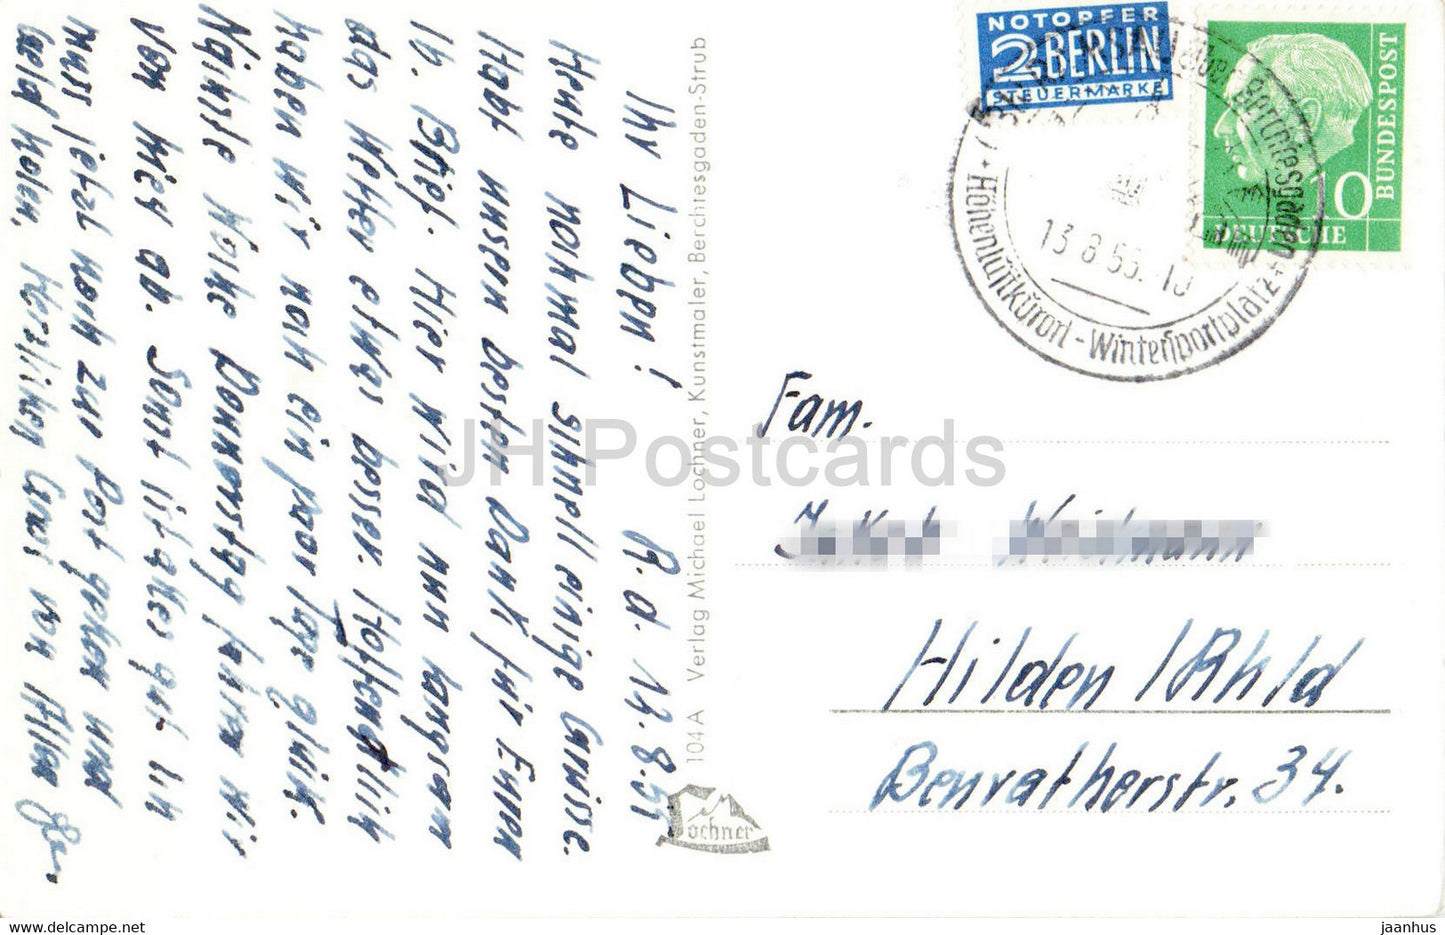 R.d. 13.8.55
Ihr Lieben!
Heute nochmal schnell einige Grüsse.
Habt unsern besten Dank für Euren
lb. Brief. Hier wird nun langsam
das Wetter etwas besser. Hoffendlich
haben wir noch ein paar Tage glück.
Nächste Woche Donnerstag fahren wir
von hier ab. Sonst ist alles gut. Ich
muss jetzt noch zur Post gehen und
Geld holen. Herzlichen Gruss von Allen
104 A Verlag Michael Lochner, Kunstmaler, Berchtesgaden-Strub
Lochner
NOTOPFER
2 BERLIN
STEUERMARKE
10
DEUTSCHE
BUNDESPOST
über Berchtesgaden
13.8.55.-10
* Höhenluftkurort - Wintersportplatz *
Fam.
Hilden / Rhld
Benratherstr. 34.
JH Postcards
https://www.ww-collect.com
jaanhus